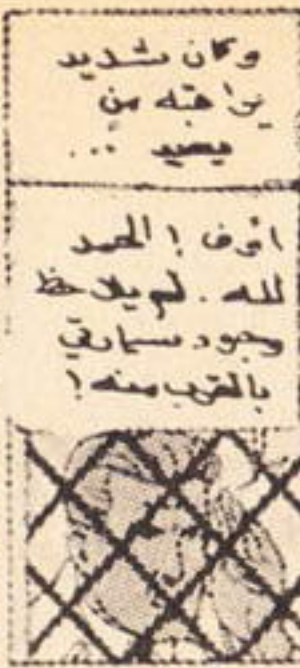 وكان شديد
يراقبه من
بعيد ...
أووف ! الحمد
لله . لم يلاحظ
وجود سيارتي
بالقرب منه !